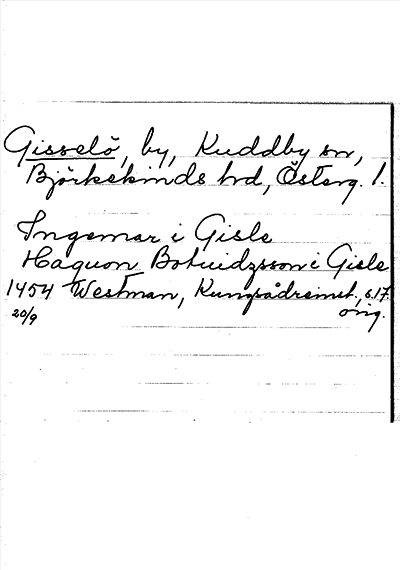 Gisselö, by, Kuddby sn,
Björkekinds hd, Österg. l.
Ingemar i Gisle
Haquon Botuidzsson i Gisle
1454 Westman, Kungsådreinst., s.17.
20/9 orig.